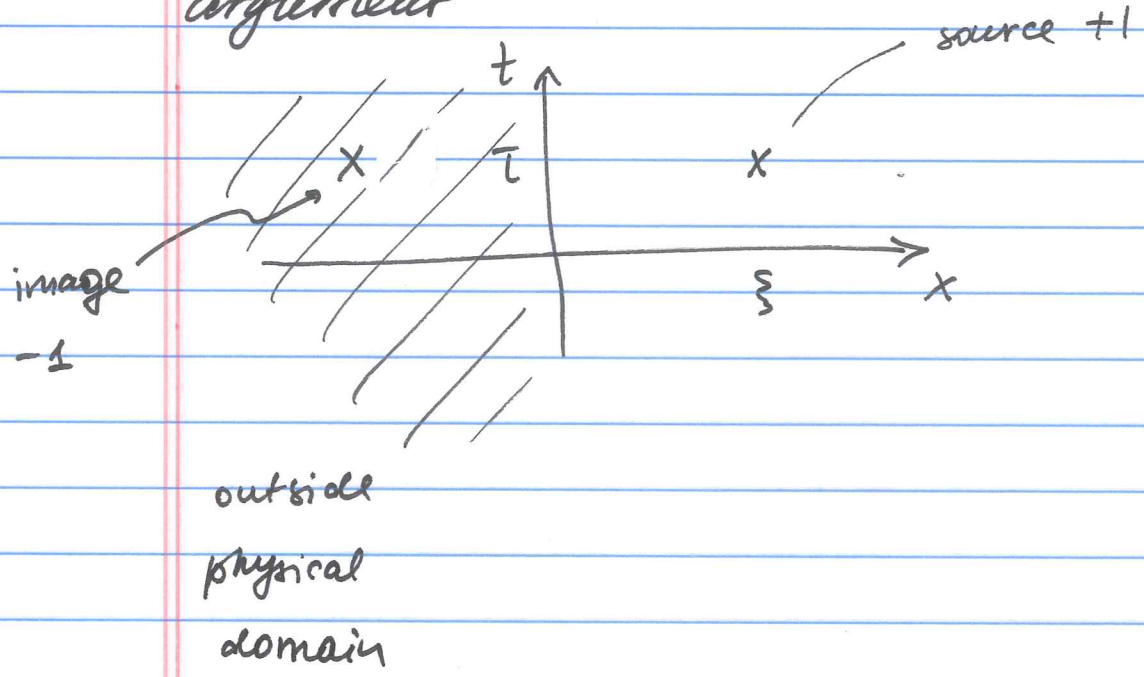 argument
source +1
t
X
τ
x
image
ξ
x
-1
outside
physical
domain